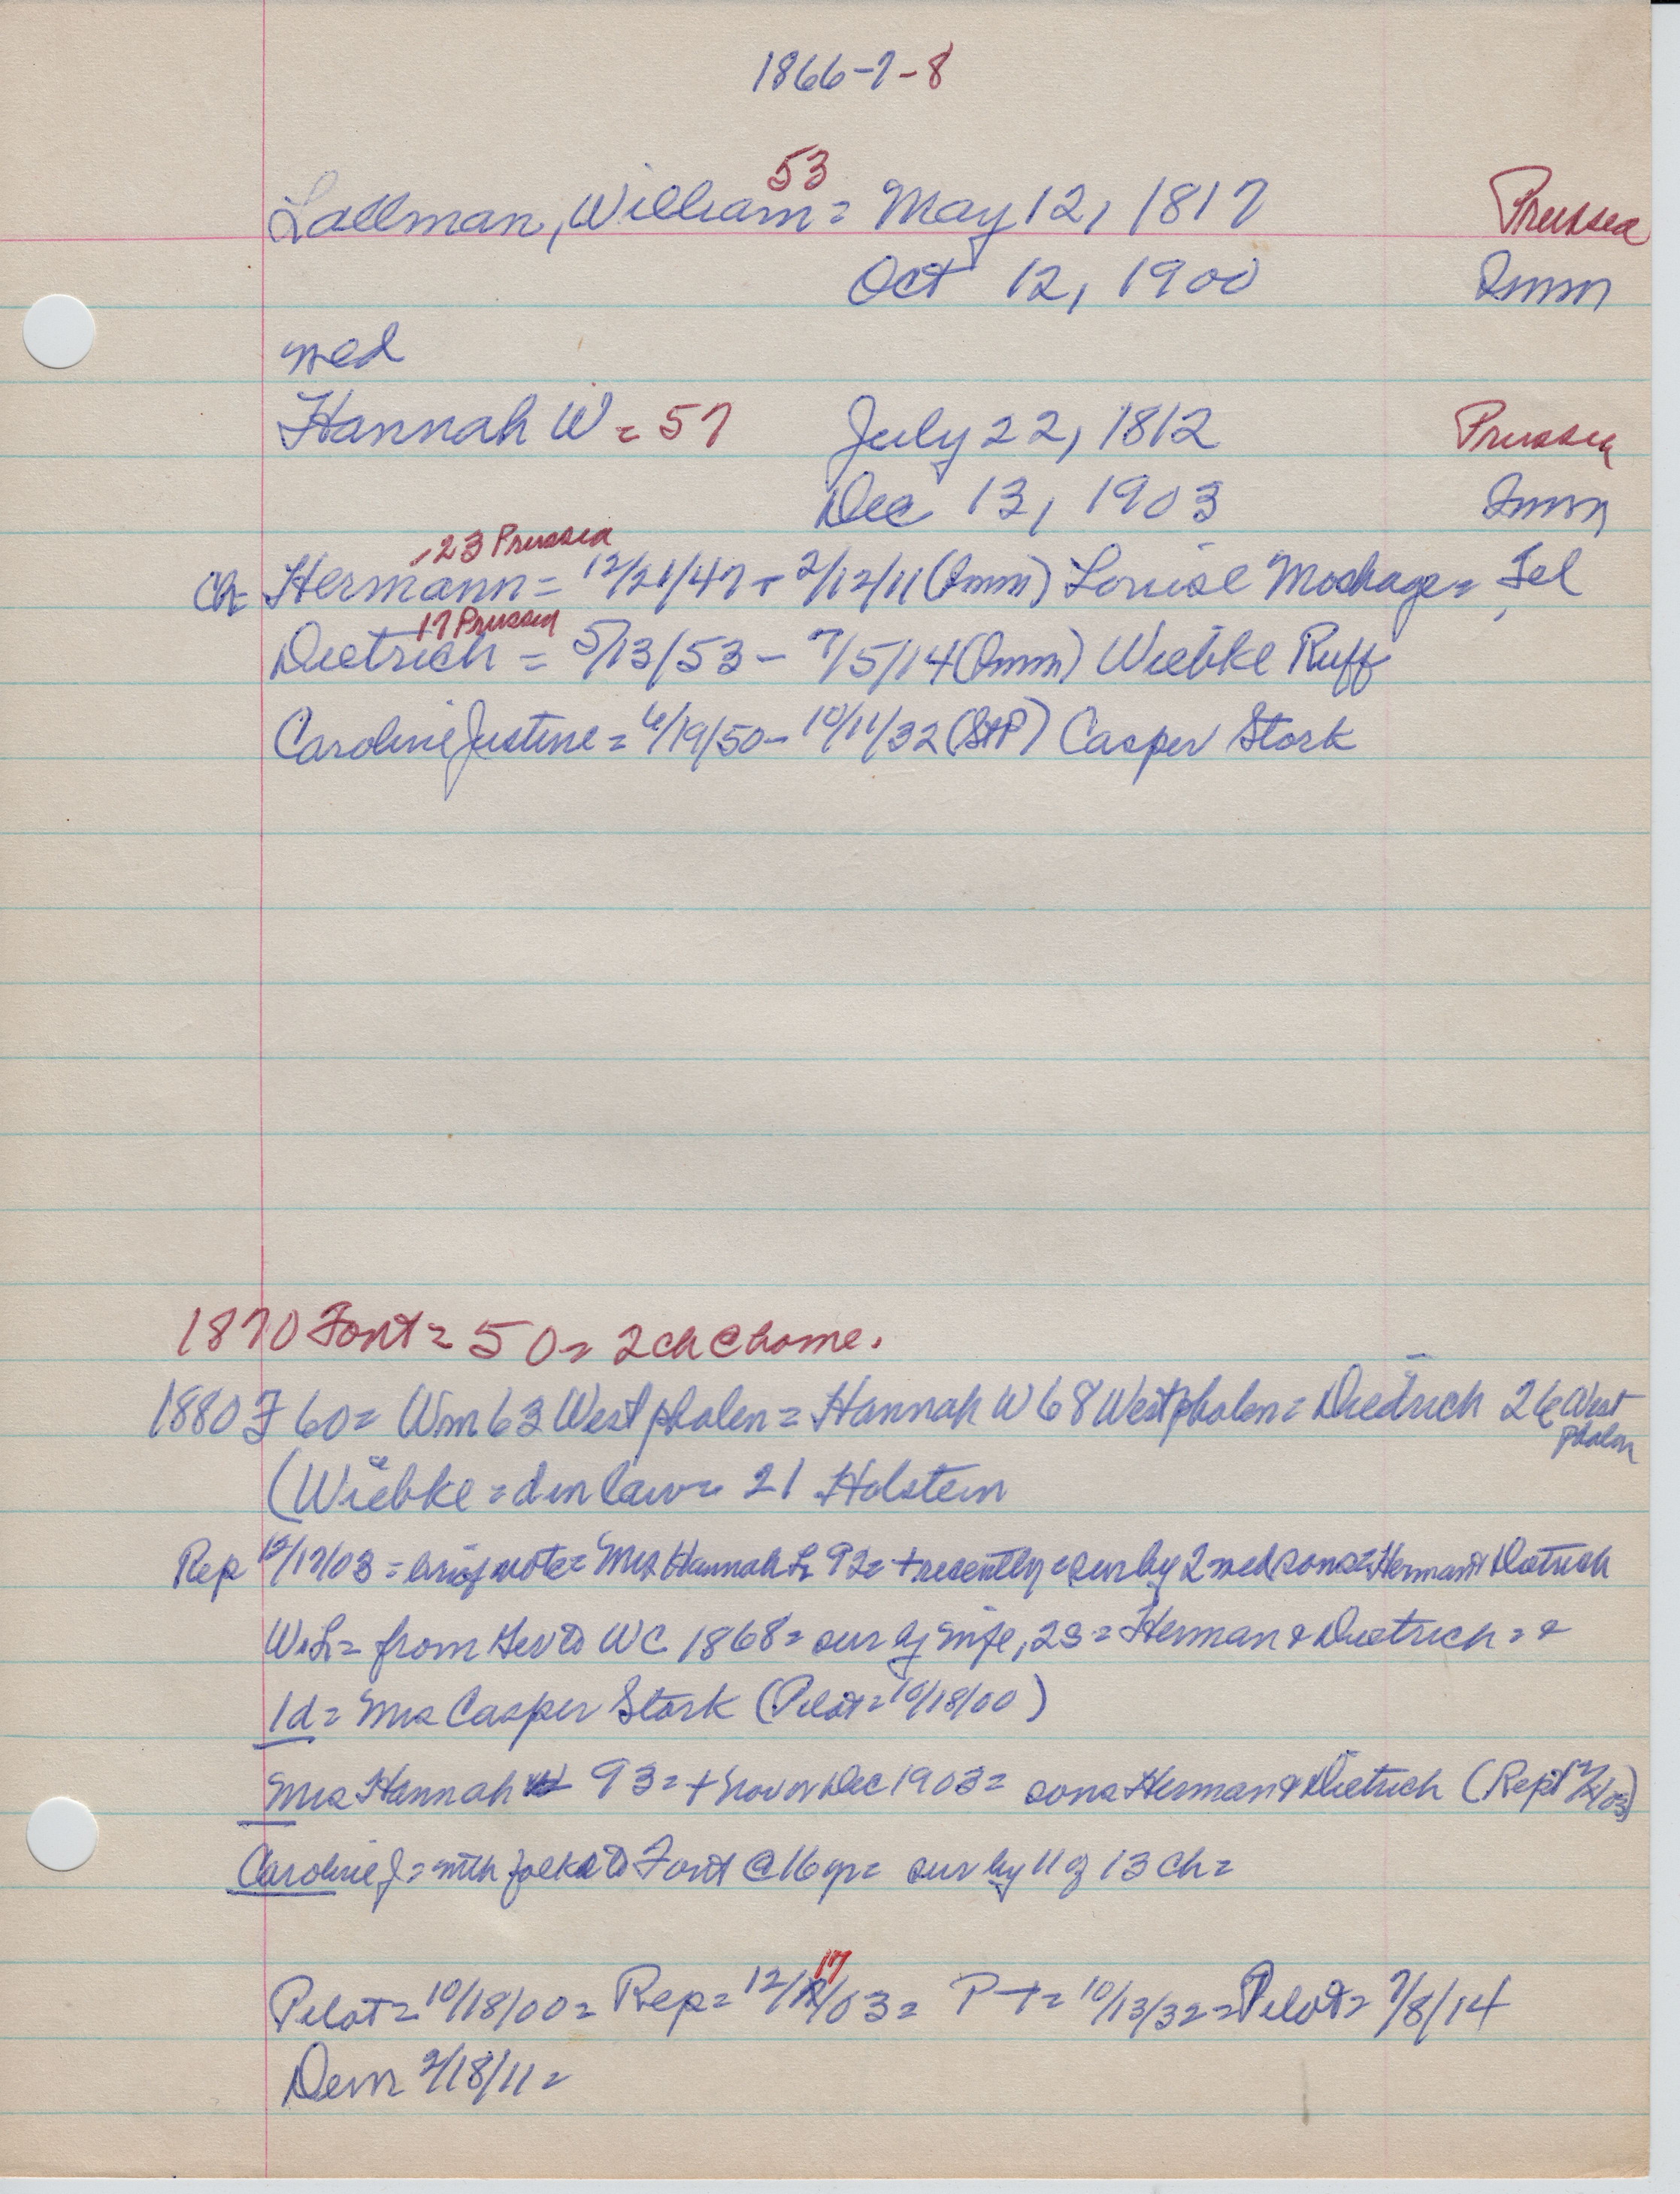 1866-7-8
53
Lallman, William = May 12, 1817 Prussia
Oct 12, 1900 Imm
med
Hannah W = 57 July 22, 1812 Prussia
Dec 13, 1903 Imm
-23 Prussia
Ch= Hermann = 12/21/47 - 2/12/11 (Imm) Louise Mockage = Tel
17 Prussia
Dietrich = 5/13/53 - 7/5/14 (Imm) Wiebke Ruff
Caroline Justine = 6/19/50 - 10/11/32 (StP) Casper Stork
1870 Font = 50 = 2 ch @ home.
1880 F 60 = Wm 63 Westphalen = Hannah W 68 Westphalen = Diedrich 26 Westphalen
(Wiebke = d in law = 21 Holstein
Rep 12/17/03 = brief note = Mrs Hannah L 92 = + recently = sur by 2 med sons = Herman & Dietrich
W.L = from Ger to WC 1868 = sur by wife, 2s = Herman & Dietrich = &
1d = Mrs Casper Stork (Pilot = 10/18/00)
Mrs Hannah 93 = + Nov or Dec 1903 = sons Herman & Dietrich (Rept
Caroline J = with folks to Font @ 16 yr = sur by 11 of 13 ch =
17
Pilot = 10/18/00 = Rep = 12/ /03 = P-+ = 10/13/32 = Pilot = 7/8/14
Dem 2/18/11 =